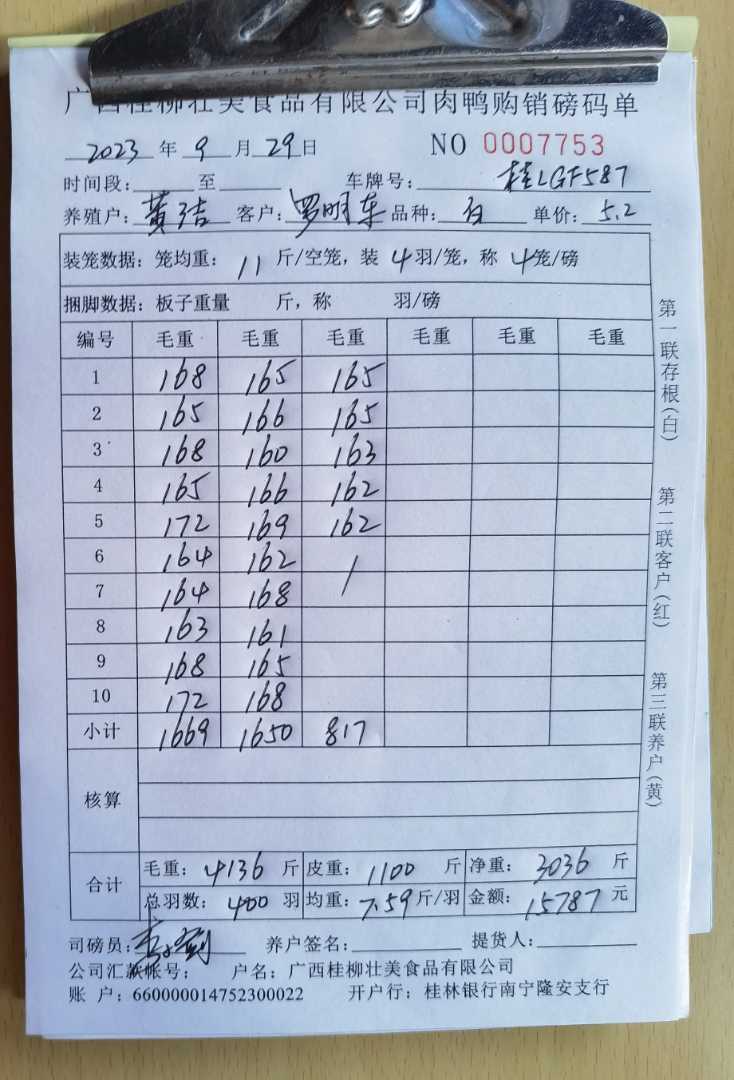 广西桂柳壮美食品有限公司肉鸭购销磅码单
2023 年 9 月 29 日 NO 0007753
时间段: 至 车牌号: 桂LGF587
养殖户: 黄洁 客户: 罗明东 品种: 白 单价: 5.2
装笼数据: 笼均重: 11 斤/空笼, 装 4 羽/笼, 称 4 笼/磅
捆脚数据: 板子重量 斤, 称 羽/磅
编号 毛重 毛重 毛重 毛重 毛重 毛重
1 168 165 165
2 165 166 165
3 168 160 163
4 165 166 162
5 172 169 162
6 164 162 /
7 164 168
8 163 161
9 168 165
10 172 168
小计 1669 1650 817
核算
合计 毛重: 4136 斤 皮重: 1100 斤 净重: 3036 斤
总羽数: 400 羽 均重: 7.59 斤/羽 金额: 15787 元
司磅员: 养户签名: 提货人:
公司汇款帐号: 户名: 广西桂柳壮美食品有限公司
账 户: 660000014752300022 开户行: 桂林银行南宁隆安支行
第一联存根(白)
第二联客户(红)
第三联养户(黄)